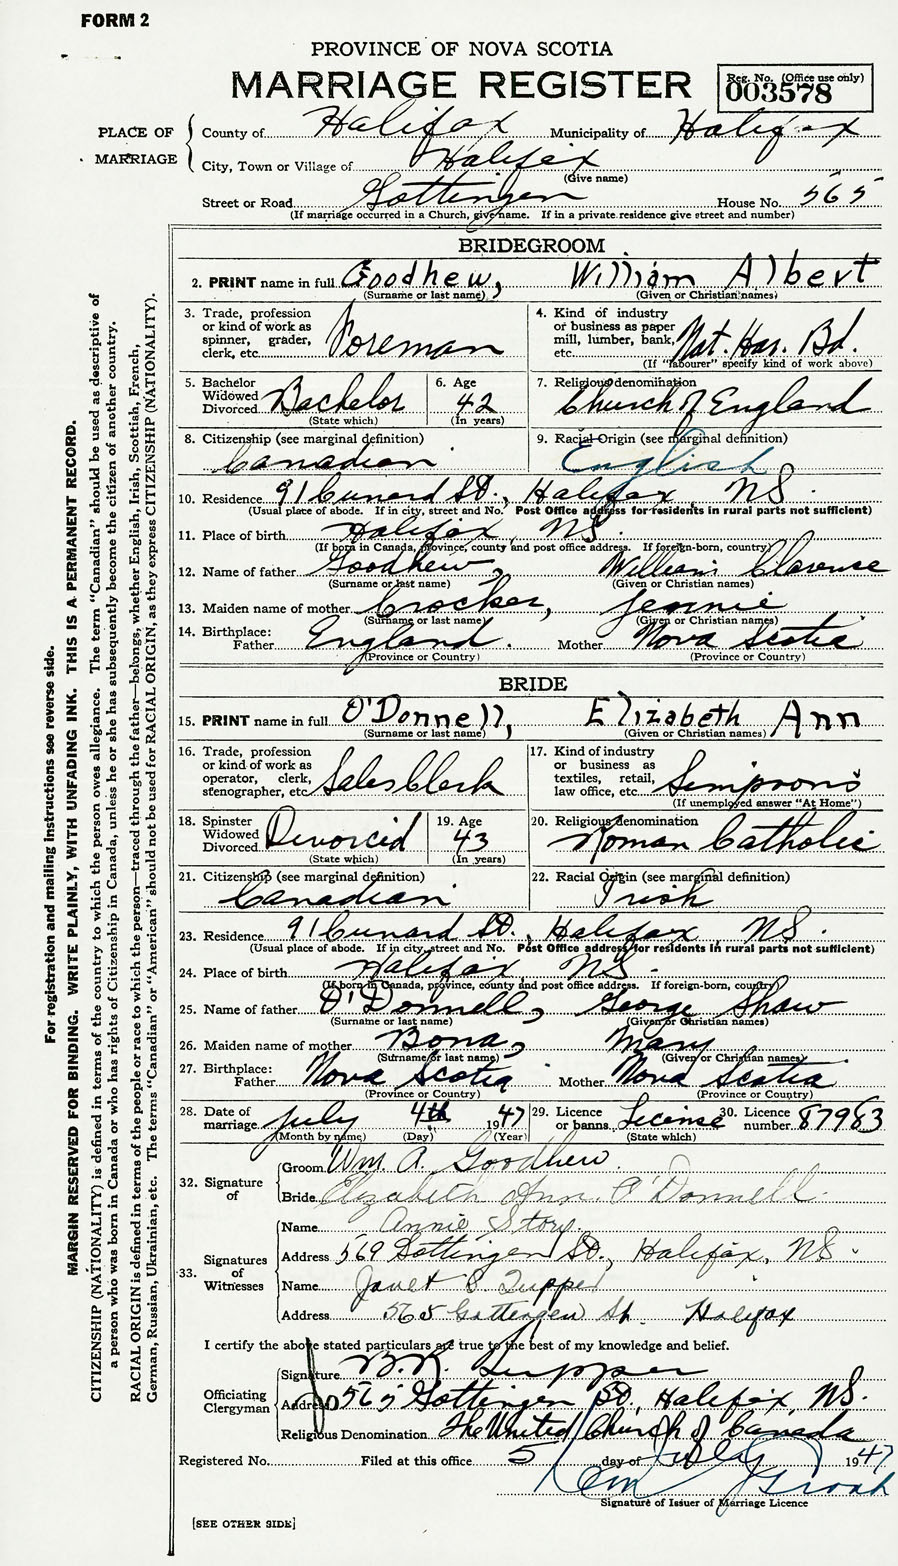 FORM 2
PROVINCE OF NOVA SCOTIA
MARRIAGE REGISTER
Reg. No. (Office use only)
003578
PLACE OF MARRIAGE
County of Halifax Municipality of Halifax
City, Town or Village of Halifax
(Give name)
Street or Road Gottingen House No. 565
(If marriage occurred in a Church, give name. If in a private residence give street and number)
BRIDEGROOM
2. PRINT name in full Goodhew, William Albert
(Surname or last name) (Given or Christian names)
3. Trade, profession or kind of work as spinner, grader, clerk, etc. Foreman
4. Kind of industry or business as paper mill, lumber, bank, etc. Nat. Har. Bd.
(If "labourer" specify kind of work above)
5. Bachelor Widowed Divorced Bachelor
(State which)
6. Age 42
(In years)
7. Religious denomination Church of England
8. Citizenship (see marginal definition) Canadian
9. Racial Origin (see marginal definition) English
10. Residence 91 Cunard St., Halifax, NS.
(Usual place of abode. If in city, street and No. Post Office address for residents in rural parts not sufficient)
11. Place of birth Halifax, NS.
(If born in Canada, province, county and post office address. If foreign-born, country)
12. Name of father Goodhew, William Clarence
(Surname or last name) (Given or Christian names)
13. Maiden name of mother Crocker, Jennie
(Surname or last name) (Given or Christian names)
14. Birthplace: Father England. Mother Nova Scotia
(Province or Country) (Province or Country)
BRIDE
15. PRINT name in full O'Donnell, Elizabeth Ann
(Surname or last name) (Given or Christian names)
16. Trade, profession or kind of work as operator, clerk, stenographer, etc. Sales Clerk
17. Kind of industry or business as textiles, retail, law office, etc. Simpson's
(If unemployed answer "At Home")
18. Spinster Widowed Divorced Divorcid
(State which)
19. Age 43
(In years)
20. Religious denomination Roman Catholic
21. Citizenship (see marginal definition) Canadian
22. Racial Origin (see marginal definition) Irish
23. Residence 91 Cunard St., Halifax, NS.
(Usual place of abode. If in city, street and No. Post Office address for residents in rural parts not sufficient)
24. Place of birth Halifax, NS.
(If born in Canada, province, county and post office address. If foreign-born, country)
25. Name of father O'Donnell, George Shaw
(Surname or last name) (Given or Christian names)
26. Maiden name of mother Bona, Mary
(Surname or last name) (Given or Christian names)
27. Birthplace: Father Nova Scotia Mother Nova Scotia
(Province or Country) (Province or Country)
28. Date of marriage July 4th 1947
(Month by name) (Day) (Year)
29. Licence or banns License
(State which)
30. Licence number 87983
32. Signature of
Groom Wm. A. Goodhew.
Bride Elizabeth Ann. O'Donnell.
33. Signatures of Witnesses
Name Annie Story.
Address 569 Gottingen St., Halifax, NS.
Name Janet S. Tupper
Address 565 Gottingen St. Halifax
I certify the above stated particulars are true to the best of my knowledge and belief.
Officiating Clergyman
Signature B.R. Tupper
Address 565 Gottingen St., Halifax, NS.
Religious Denomination The United Church of Canada
Registered No. Filed at this office 5 day of July 1947
Signature of Issuer of Marriage Licence
[SEE OTHER SIDE]
For registration and mailing instructions see reverse side.
MARGIN RESERVED FOR BINDING. WRITE PLAINLY, WITH UNFADING INK. THIS IS A PERMANENT RECORD.
CITIZENSHIP (NATIONALITY) is defined in terms of the country to which the person owes allegiance. The term "Canadian" should be used as descriptive of
a person who was born in Canada or who has rights of Citizenship in Canada, unless he or she has subsequently become the citizen of another country.
RACIAL ORIGIN is defined in terms of the people or race to which the person—traced through the father—belongs, whether English, Irish, Scottish, French,
German, Russian, Ukrainian, etc. The terms "Canadian" or "American" should not be used for RACIAL ORIGIN, as they express CITIZENSHIP (NATIONALITY).